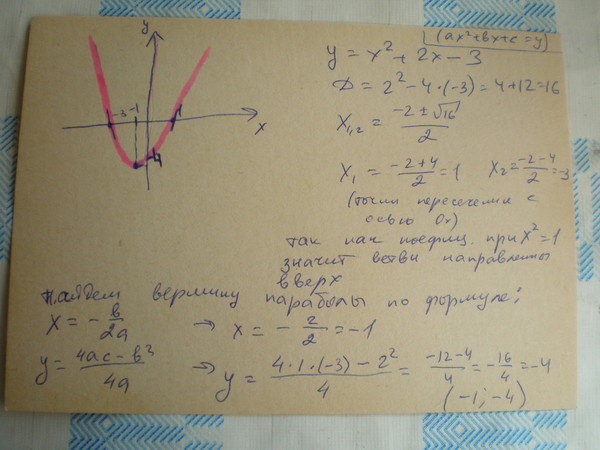 y
-3 -1 1
x
-4
(ax²+bx+c=y)
y = x² + 2x - 3
D = 2² - 4·(-3) = 4+12=16
X₁,₂ = (-2 ± √16)/2
X₁ = (-2+4)/2 = 1 X₂ = (-2-4)/2 = -3
(точки пересечения с
осью Ox)
так как коефиц. при x² = 1
значит ветви направленны
вверх
найдем вершину параболы по формуле:
x = - b/2a → x = - 2/2 = -1
y = (4ac - b²)/4a → y = (4·1·(-3) - 2²)/4 = (-12-4)/4 = -16/4 = -4
(-1; -4)